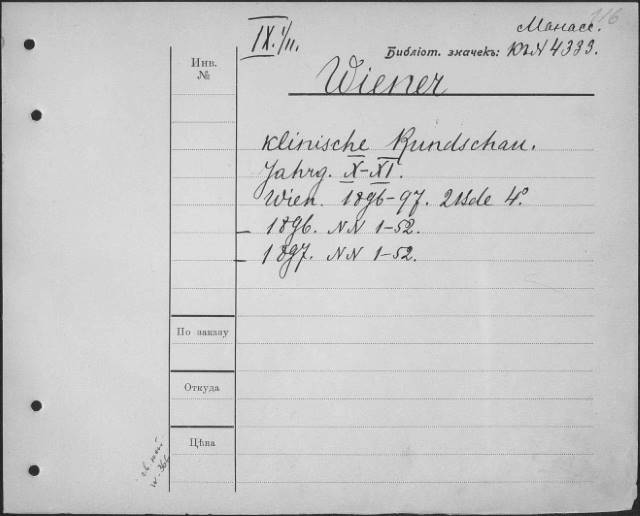 116
Манасс.
IX. 1/11.
Библіот. значекъ: Кл N 4333.
Инв.
№
Wiener
klinische Rundschau.
Jahrg. X-XI.
Wien. 1896-97. 2 Bde 4.°
1896. NN 1-52.
1897. NN 1-52.
По заказу
Откуда
Цѣна